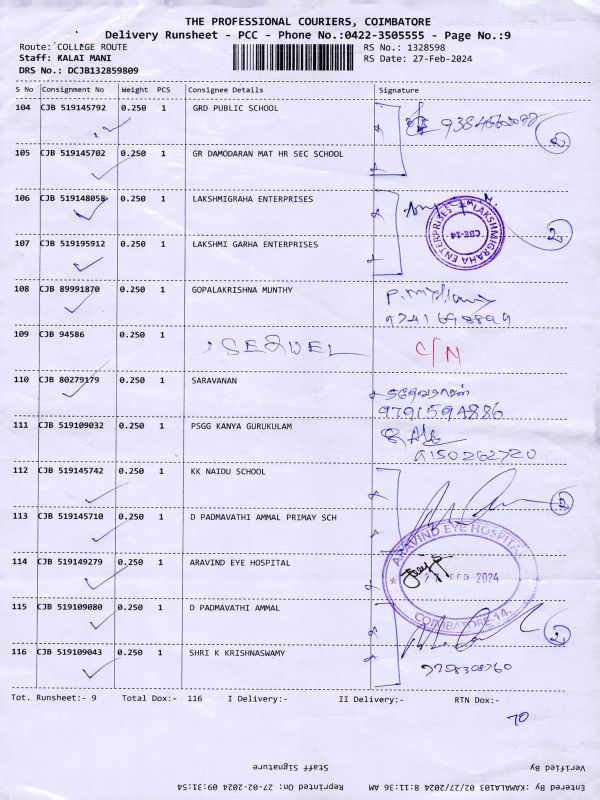 THE PROFESSIONAL COURIERS, COIMBATORE
Delivery Runsheet - PCC - Phone No.:0422-3505555 - Page No.:9
Route: COLLEGE ROUTE RS No.: 1328598
Staff: KALAI MANI RS Date: 27-Feb-2024
DRS No.: DCJB132859809
S No Consignment No Weight PCS Consignee Details Signature
104 CJB 519145792 0.250 1 GRD PUBLIC SCHOOL
105 CJB 519145702 0.250 1 GR DAMODARAN MAT HR SEC SCHOOL
106 CJB 519148058 0.250 1 LAKSHMIGRAHA ENTERPRISES
LAKSHMIGRAHA ENTERPRISES
CBE-14
2
107 CJB 519195912 0.250 1 LAKSHMI GARHA ENTERPRISES
108 CJB 89991870 0.250 1 GOPALAKRISHNA MUNTHY
109 CJB 94586 0.250 1
SEQUEL C/N
110 CJB 80279179 0.250 1 SARAVANAN
9791594886
111 CJB 519109032 0.250 1 PSGG KANYA GURUKULAM
9150262720
112 CJB 519145742 0.250 1 KK NAIDU SCHOOL
2
113 CJB 519145710 0.250 1 D PADMAVATHI AMMAL PRIMAY SCH
114 CJB 519149279 0.250 1 ARAVIND EYE HOSPITAL
ARAVIND EYE HOSPITA
FEB 2024
COIMBATORE-14.
115 CJB 519109080 0.250 1 D PADMAVATHI AMMAL
2
116 CJB 519109043 0.250 1 SHRI K KRISHNASWAMY
Tot. Runsheet:- 9 Total Dox:- 116 I Delivery:- II Delivery:- RTN Dox:-
70
Verified By Staff Signature
Entered By: KAMALA103 02/27/2024 8:11:36 AM Reprinted On: 27-02-2024 09:31:54